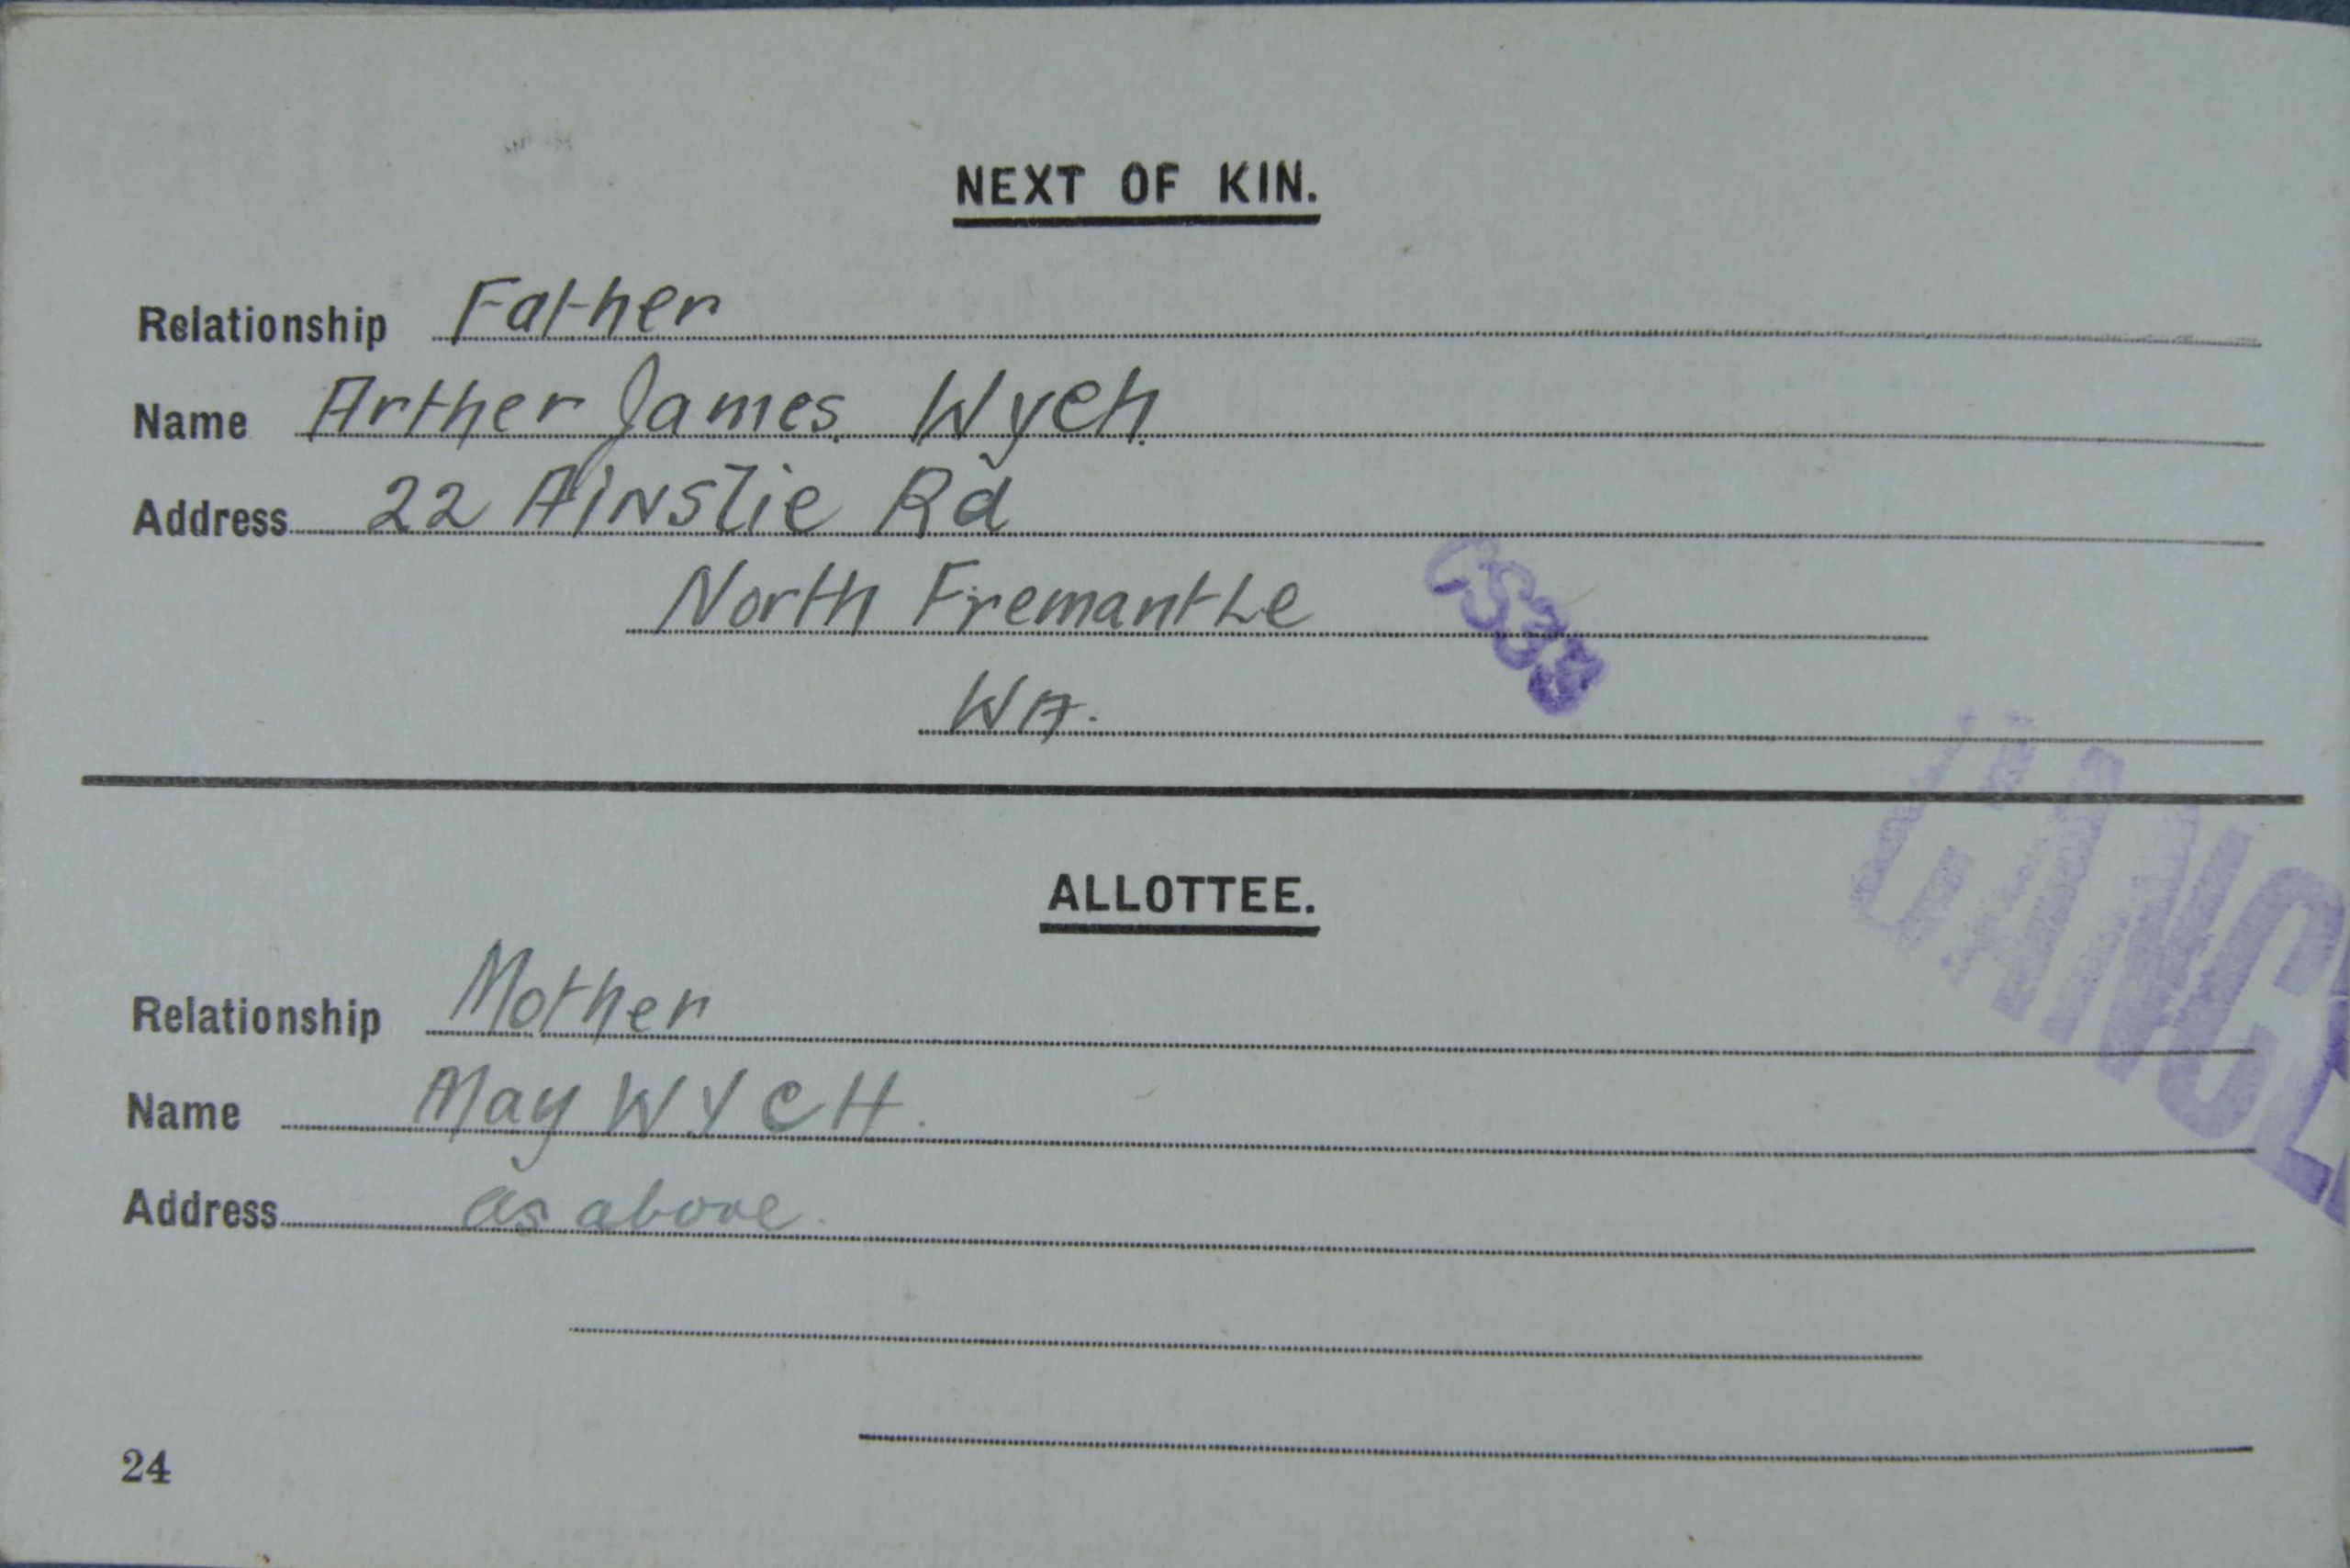 NEXT OF KIN.
Relationship Father
Name Arther James Wych
Address 22 Ainslie Rd
North Fremantle
WA.
ALLOTTEE.
Relationship Mother
Name May WYCH.
Address as above.
CANCE
24